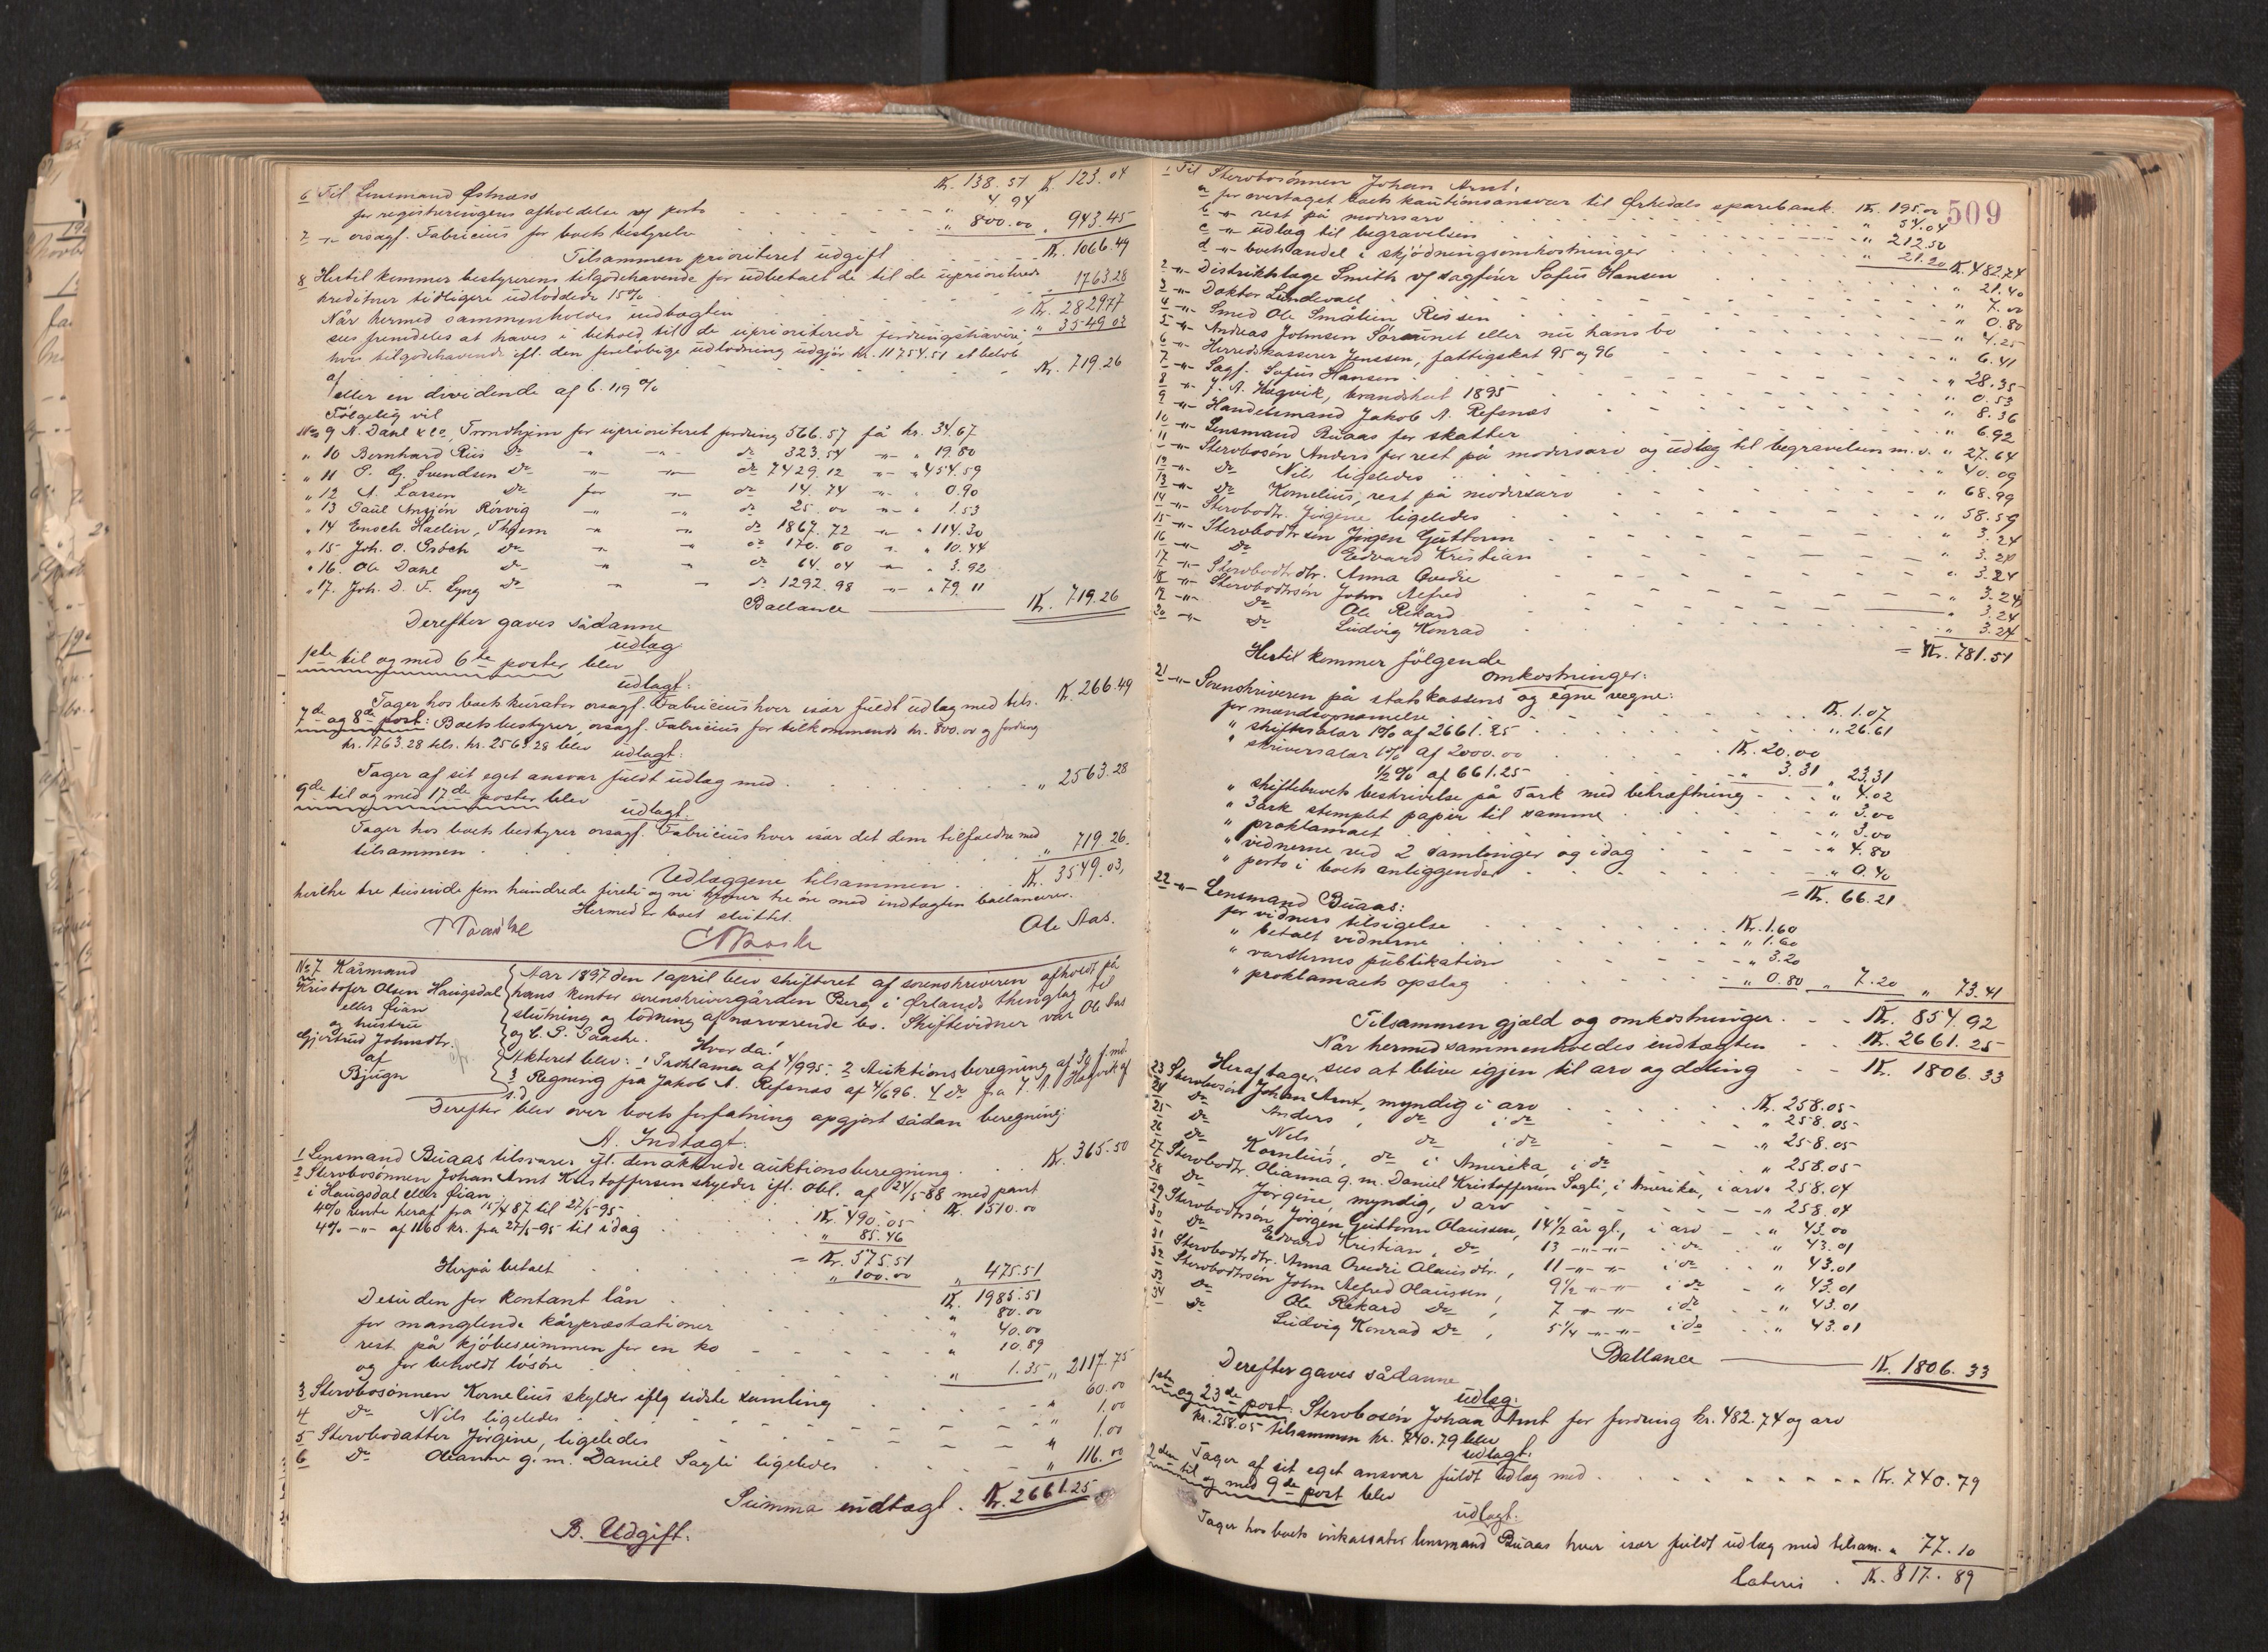 Kr. 138.51 Kr. 123.04
6 Til Lensmand Østnæs
for registreringens afholdelse og porto " 4.94
7 -"- orsagf. Fabricius for boets bestyrelse " 800.00 " 943.45
Tilsammen prioriteret udgift Kr. 1066.49
8 Hertil kommer bestyrerens tilgodehavende for udbetalt de til de uprioriterede
kreditorer tidligere udloddede 15% " 1763.28
= Kr. 2829.77
Når hermed sammenholdes indtægten " 3549.03
sees fremdeles at haves i behold til de uprioriterede fordringshavere,
hvis tilgodehavende ifl. den foreløbige udlodning udgjør kr. 11754.51 et beløb
af Kr. 719.26
eller en dividende af 6.119 %
Følgelig vil
No 9 N. Dahl & Co, Trondhjem for uprioriteret fordring 566.57 få kr. 34.67
" 10 Bernhard Ries do " -"- do 323.54 -"- " 19.80
" 11 P. G. Svendsen do -"- -"- do 7429.12 -"- " 454.59
" 12 A. Larsen do for -"- do 14.74 -"- " 0.90
" 13 Paul Ansjøn Rørvig -"- -"- do 25.00 -"- " 1.53
" 14 Enoch Hallin, Thjem -"- -"- do 1867.72 -"- " 114.30
" 15 Joh. O. Gsöch do -"- -"- do 170.60 -"- " 10.44
" 16. Ole Dahl do -"- -"- do 64.04 -"- " 3.92
" 17. Joh. D. F. Lyng do -"- -"- do 1292.98 -"- " 79.11
Ballance Kr. 719.26
Derefter gaves sådanne
udlæg
1ste til og med 6te poster blev
udlagt:
Tager hos boets kurator orsagf. Fabricius hver især fuldt udlæg med tils. Kr. 266.49
7de og 8de post: Boets bestyrer, orsagf. Fabricius for tilkommende kr. 800.00 og fordring
kr. 1763.28 tils. kr. 2563.28 blev
udlagt:
Tager af sit eget ansvar fuldt udlæg med " 2563.28
9de til og med 17de poster blev
udlagt.
Tager hos boets bestyrer orsagf. Fabricius hver især det dem tilfaldne med
tilsammen " 719.26.
Udlæggene tilsammen Kr. 3549.03,
hvilke tre tusinde fem hundrede firti og ni kroner tre øre med indtægten ballancerer.
Hermed er boet sluttet.
Ole Aas.
No 7. Kårmand
Kristofer Olsen Haugsdal
eller Lian
og hustru
Gjertrud Johnsdtr.
af
Bjugn
Aar 1897 den 1 april blev skifteret af sorenskriveren afholdt på
hans kontor sorenskrivergården Berg i Ørlands thinglag til
slutning og lodning af nærværende bo. Skiftevidner var Ole Aas
og C. P. Paaske. Hvorda:
Akteret blev: 1 Proklama af 4/9 95. 2 Auktionsberegning af 3g f. md.
3 Regning fra Jakob A. Refsnæs af 4/6 96. 4 do fra J. A. Hågvik af
s.d
Derefter blev over boets forfatning opgjort sådan beregning
A. Indtægt.
1 Lensmand Buaas tilsvarer ifl. den akterede auktionsberegning Kr. 365.50
2 Sterobosønnen Johan Arnt Kristoffersen skylder ifl. obl. af 24/5 88 med pant
i Haugsdal eller Lian Kr. 1510.00
4% rente heraf fra 15/4 87 til 27/5-95 Kr. 490.05
4% -"- af 1160 kr. fra 27/5-95 til idag " 85.46
= Kr. 575.51
Herpå betalt " 100.00 " 475.51
Kr. 1985.51
Desuden for kontant lån " 80.00
for manglende kårpræstationer " 40.00
rest på kjøbesummen for en ko " 10.89
og for beholdt løsøre " 1.35 " 2117.75
3 Sterobosønnen Kornelius skylder iflg sidste samling " 60.00
4 do Nils ligeledes " 1.00
5 Sterobodatter Jørgine, ligeledes " 1.00
6 do Oleanna g. m. Daniel Sagli ligeledes " 116.00
Summa indtægt Kr. 2661.25
B. Udgift:
509
1 Til Sterobosønnen Johan Arnt:
a for overtaget boets kautionsansvar til Ørkedals sparebank Kr. 195.00
b -"- rest på modersarv " 54.04
c -"- udlæg til begravelsen " 212.50
d -"- boets andel i skjødningsomkostninger " 21.20 Kr. 482.74
2 -"- Distriktslæge Smith v/ sagfører Sofus Hansen " 21.40
3 -"- Doktor Lundevall " 7.00
4 -"- Smed Ole Smålien Rissen " 0.80
5 -"- Andreas Johnsen Sørtunet eller nu hans bo " 4.25
6 -"- Herredskasserer Jenssen, fattigskat 95 og 96 " 6.41
7 -"- Sagf. Sofus Hansen " 28.35
8 -"- J. A. Hågvik, brandskat 1895 " 0.53
9 -"- Handelsmand Jakob A. Refsnæs " 8.36
10 -"- Lensmand Buaas for skatter " 6.92
11 -"- Sterobosøn Anders for rest på modersarv og udlæg til begravelsen m. v. " 27.64
12 -"- do Nils ligeledes " 40.09
13 -"- do Kornelius, rest på modersarv " 68.99
14 -"- Sterobodtr. Jørgine ligeledes " 58.59
15 -"- Sterobodtrsøn Jørgen Guttorm " 3.24
16 -"- do Edvard Kristian " 3.24
17 -"- Sterobodtrdtr. Anna Ovedie " 3.24
18 -"- Sterobodtrsøn John Alfred " 3.24
19 -"- do Ole Rikard " 3.24
20 -"- do Ludvig Konrad " 3.24
= Kr. 781.51
Hertil kommer følgende
omkostninger:
21 -"- Sorenskriveren på statskassens og egne vegne:
for mandsopnævnelse Kr. 1.07
" skiftesalær 1% af 2661.25 " 26.61
" skriversalær 1% af 2000.00 Kr. 20.00
1/2% af 661.25 " 3.31 " 23.31
" skiftebrevets beskrivelse på 7ark med bekræftning " 4.02
" 3ark stemplet papir til samme " 3.00
" proklamaet " 3.00
" vidnerne ved 2 samlinger og idag " 4.80
" porto i boets anliggender " 0.40
= Kr. 66.21
22 -"- Lensmand Buaas:
for vidners tilsigelse Kr. 1.60
" betalt vidnerne " 1.60
" varslernes publikation " 3.20
" proklamaets opslag " 0.80 " 7.20 " 73.41
Tilsammen gjæld og omkostninger Kr. 854.92
Når hermed sammenholdes indtægten Kr. 2661.25
sees at blive igjen til arv og deling Kr. 1806.33
Heraf tager
23 Sterobosøn Johan Arnt, myndig i arv Kr. 258.05
24 do Anders, do i do " 258.05
25 do Nils do i do " 258.05
26 do Kornelius, do i Amerika, i do " 258.05
27 Sterobodtr. Olianna g. m. Daniel Kristoffersen Sagli, i Amerika, i arv " 258.04
28 do Jørgine, myndig, i arv " 258.04
29 Sterobodtrsøn Jørgen Guttorm Olaussen, 14 1/2 år gl., i arv " 43.00
30 do Edvard Kristian, do 13 -"- -"- i do " 43.01
31 Sterobodtrdtr. Anna Ovedie Olausdtr., 11 -"- -"- i do " 43.01
32 Sterobodtrsøn John Alfred Olaussen, 9 1/2 -"- -"- i do " 43.01
33 do Ole Rikard do, 7 -"- -"- i do " 43.01
34 do Ludvig Konrad do, 5 1/4 -"- -"- i do " 43.01
Ballance Kr. 1806.33
Derefter gaves sådanne
udlæg:
1ste og 23de post: Sterobosøn Johan Arnt for fordring kr. 482.74 og arv
kr. 258.05 tilsammen kr. 740.79 blev
udlagt:
Tager af sit eget ansvar fuldt udlæg med Kr. 740.79
2den til og med 9de post blev
udlagt.
Tager hos boets inkassator lensmand Buaas hver især fuldt udlæg med tilsam. " 77.10
Lateris Kr. 817.89